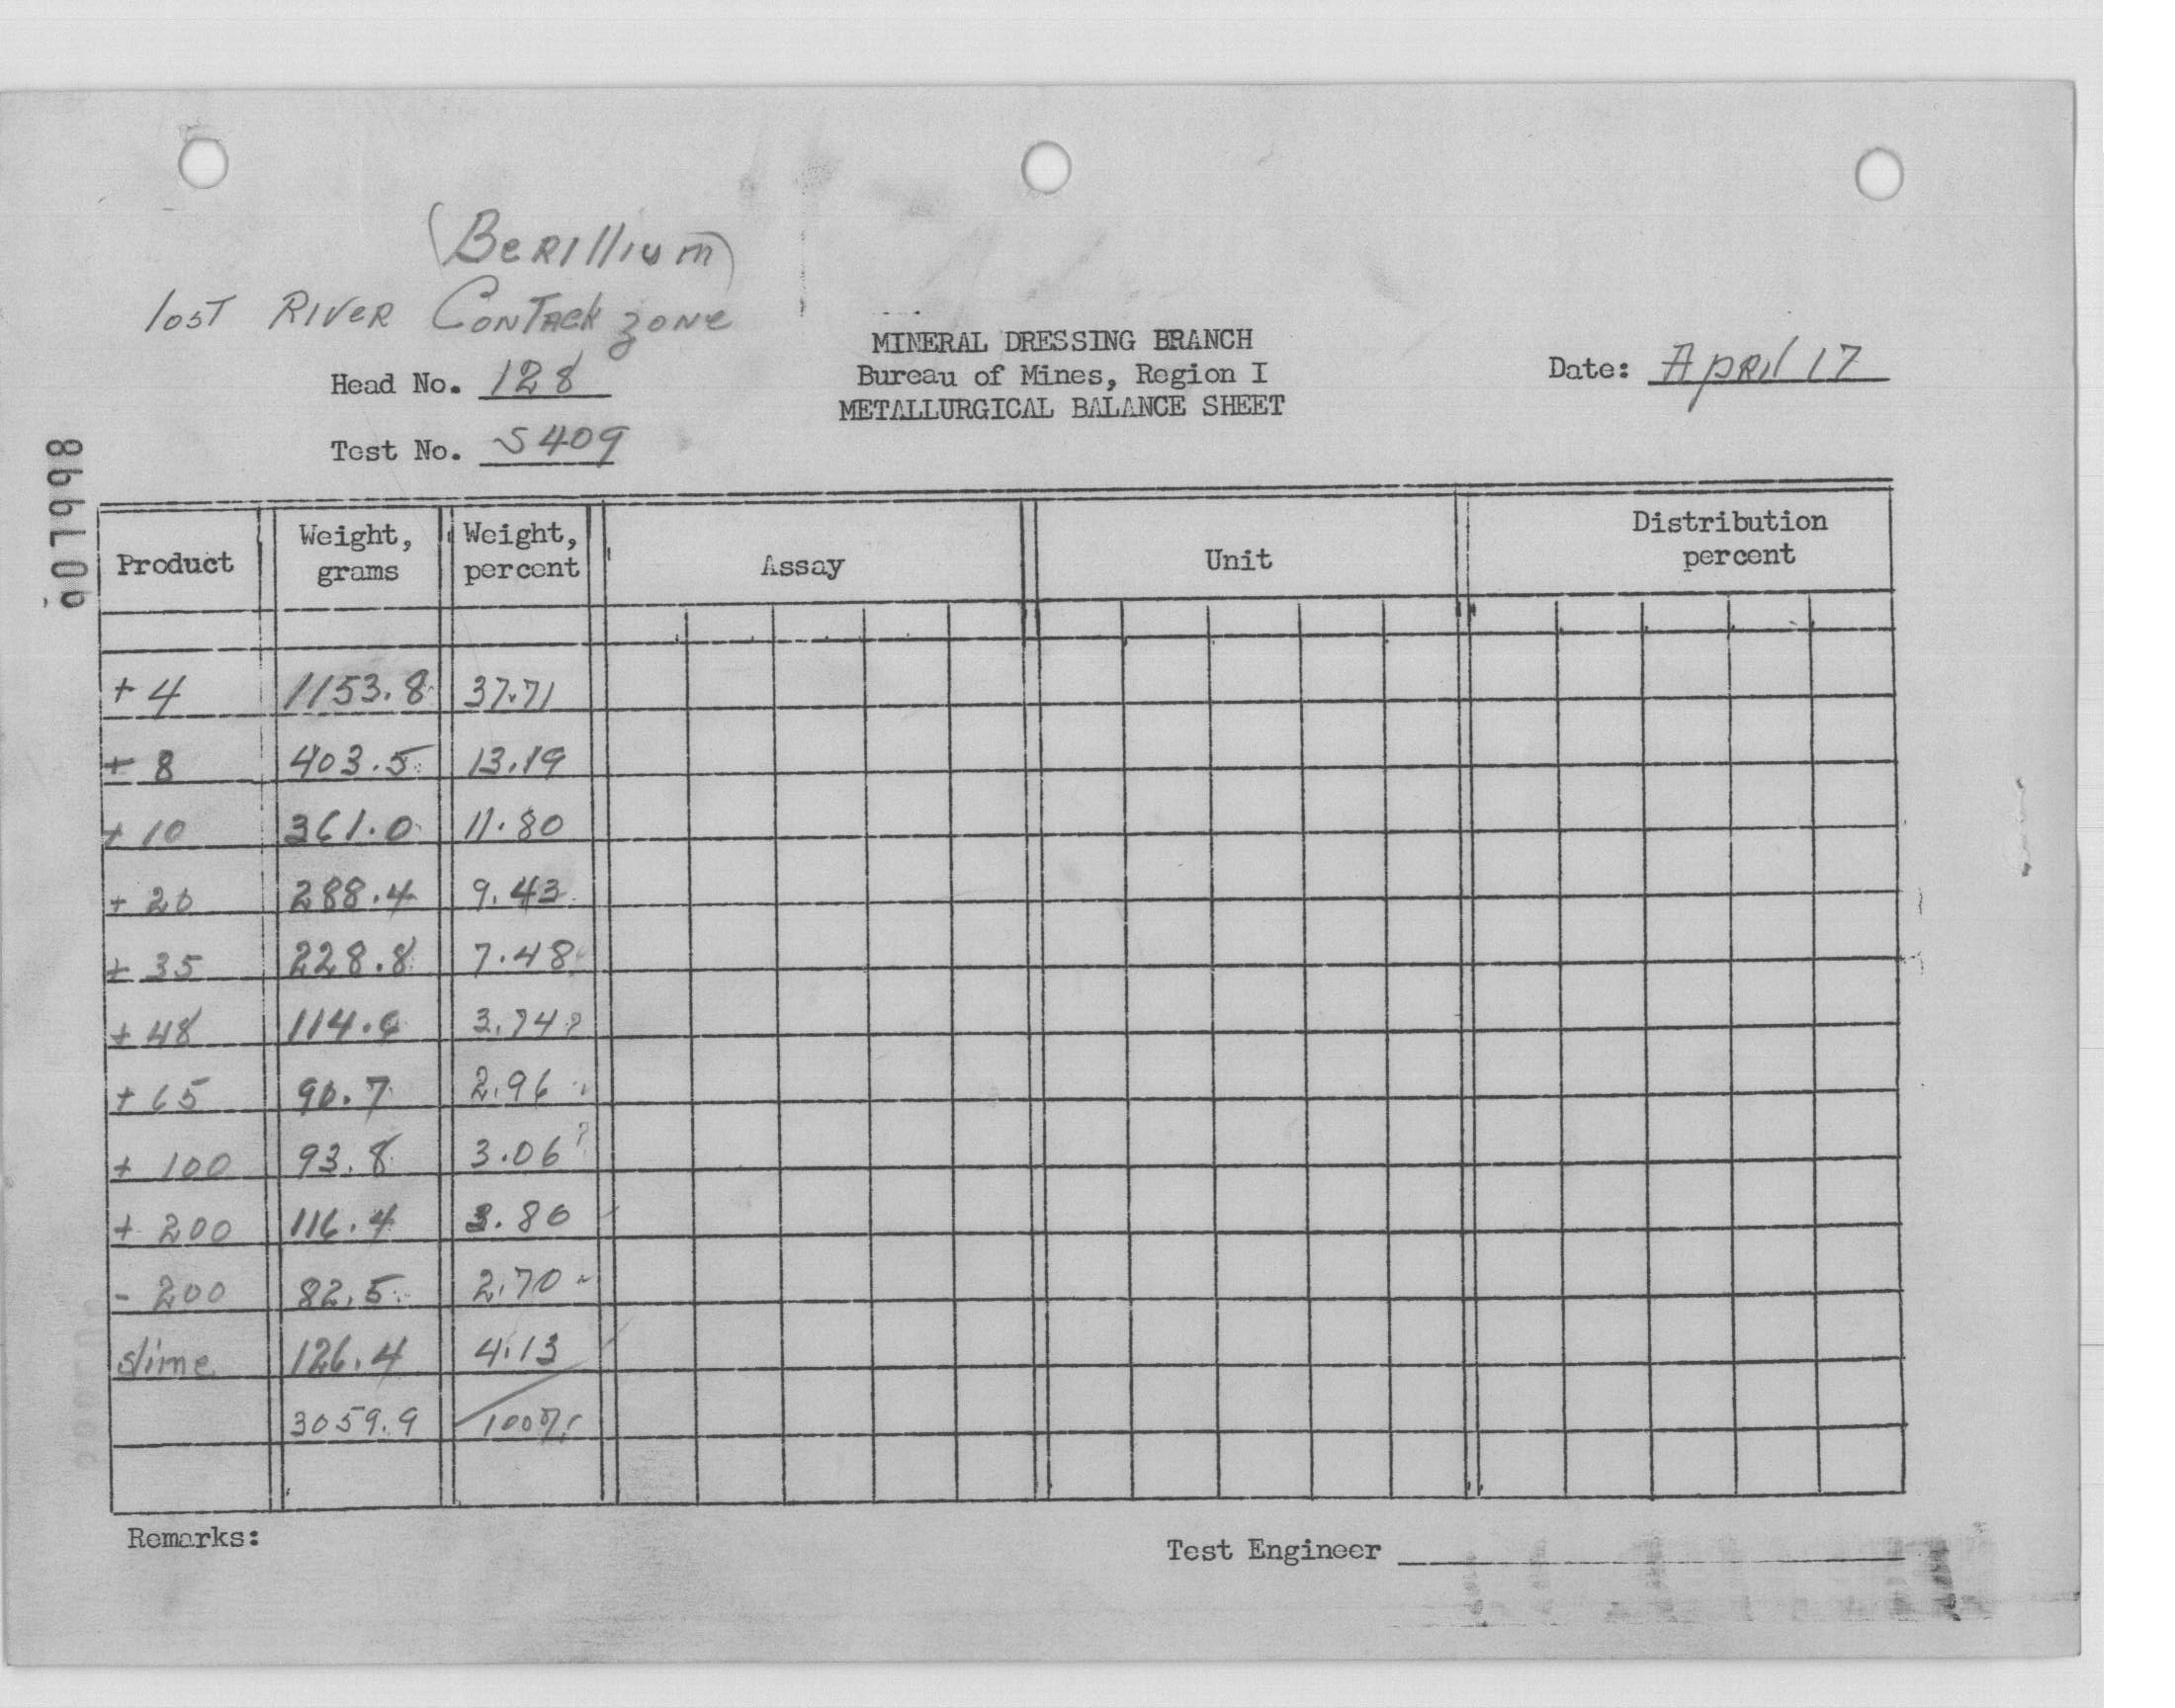 (BeRillium)
lost RIVeR ConTAck zone
MINERAL DRESSING BRANCH
Bureau of Mines, Region I
METALLURGICAL BALANCE SHEET
Date: April 17
Head No. 128
Test No. S409
Product Weight, grams Weight, percent Assay Unit Distribution percent
+ 4 1153.8 37.71
+ 8 403.5 13.19
+ 10 361.0 11.80
+ 20 288.4 9.43
+ 35 228.8 7.48
+ 48 114.6 3.74?
+ 65 90.7 2.96
+ 100 93.8 3.06?
+ 200 116.4 3.80
- 200 82.5 2.70
slime 126.4 4.13
3059.9 100%
Remarks:
Test Engineer